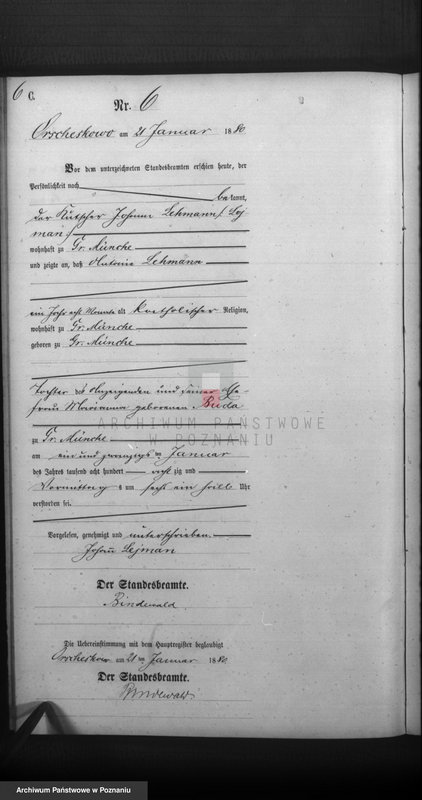 6
C.
Nr. 6
Orscheskowo am 21 Januar 1880
Vor dem unterzeichneten Standesbeamten erschien heute, der
Persönlichkeit nach
bekannt,
der Kutscher Johann Lehmann (Lej
man)
wohnhaft zu Gr. Münche
und zeigte an, daß Antonie Lehmann
ein Jahr acht Monate alt katholischer Religion,
wohnhaft zu Gr. Münche
geboren zu Gr. Münche
Tochter des Anzeigenden und seiner Ehe-
frau Marianna geborenen Buda
ARCHIWUM PAŃSTWOWE
W POZNANIU
zu Gr. Münche
am ein und zwanzigsten Januar
des Jahres tausend acht hundert acht zig und
Vormittag s um sechs ein halb Uhr
verstorben sei.
Vorgelesen, genehmigt und unterschrieben
Johann Lejman
Der Standesbeamte.
Bindewald
Die Uebereinstimmung mit dem Hauptregister beglaubigt
Orscheskowo am 21 ten Januar 1880
Der Standesbeamte.
Bindewald
Archiwum Państwowe w Poznaniu